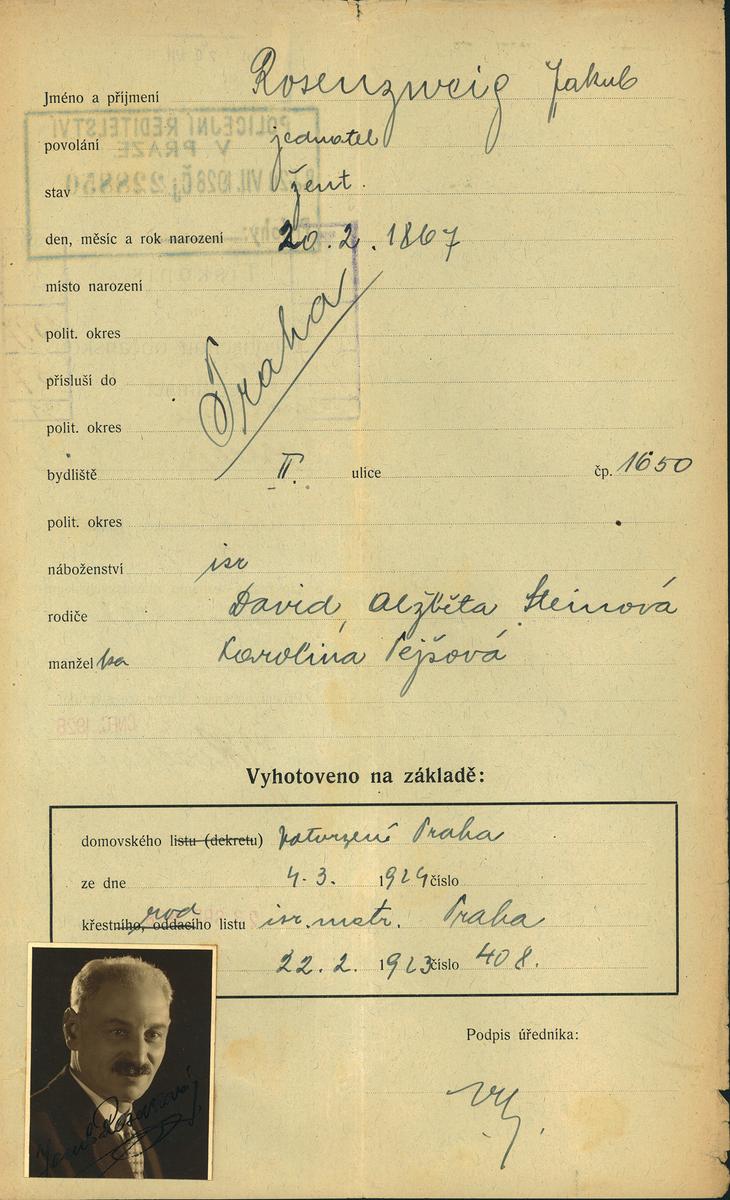 Jméno a příjmení Rosenzweig Jakub
povolání jednatel
stav žent.
den, měsíc a rok narození 20. 2. 1867
místo narození
polit. okres
Praha
přísluší do
polit. okres
bydliště II. ulice čp. 1650
polit. okres
náboženství isr
rodiče David, Alžběta Steinová
manžel ka Karolina Pejšová
Vyhotoveno na základě:
domovského listu (dekretu) potvrzení Praha
ze dne 4. 3. 1924 číslo
rod
křestního, oddacího listu isr. matr. Praha
22. 2. 1923 číslo 408.
Podpis úředníka: